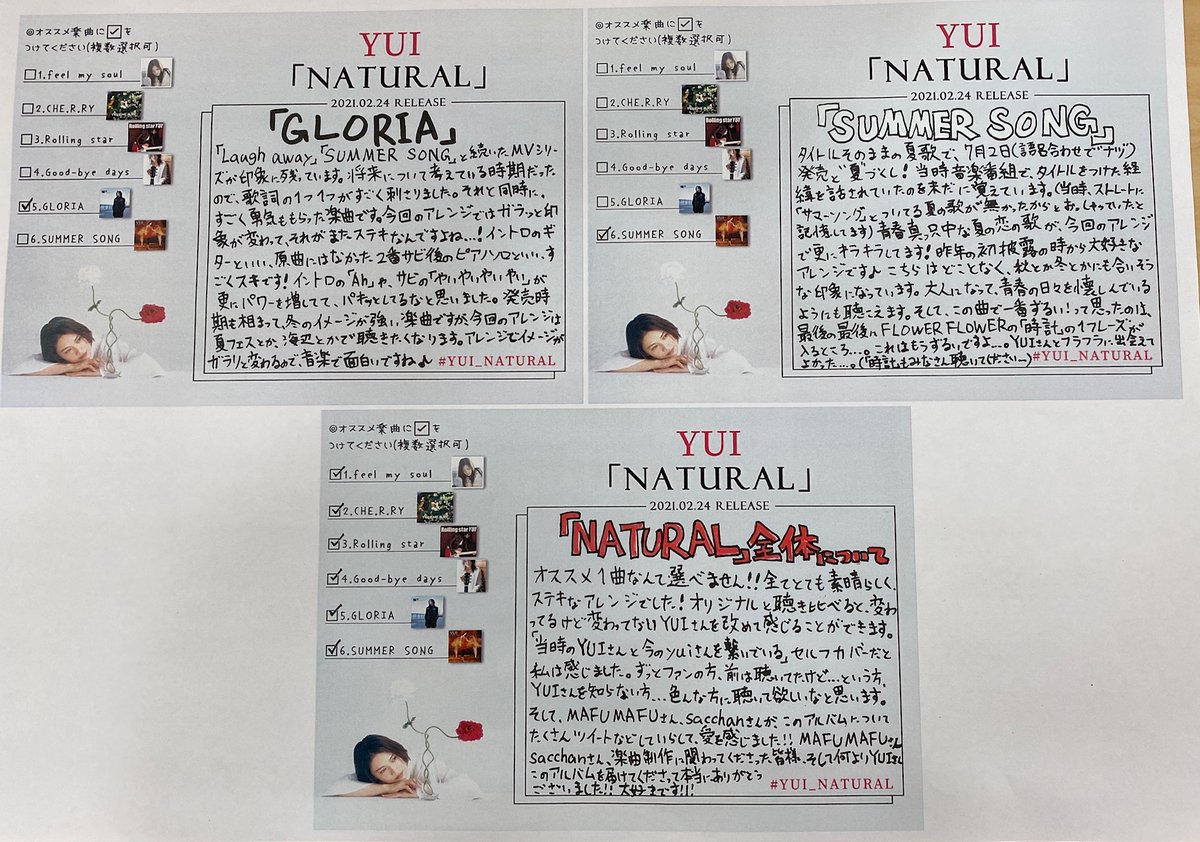 ◎オススメ楽曲に☑を
つけてください(複数選択可)
□1.feel my soul
□2.CHE.R.RY
□3.Rolling star
Rolling star YUI
□4.Good-bye days
☑5.GLORIA
□6.SUMMER SONG
YUI
「NATURAL」
2021.02.24 RELEASE
「GLORIA」
「Laugh away」「SUMMER SONG」と続いたMVシリー
ズが印象に残ています。将来について考えている時期だった
ので、歌詞の1つ1つがすごく刺さりました。それと同時に、
すごく勇気ももらった楽曲です。今回のアレンジではガラッと印
象が変わって、それがまたステキなんですよね...!イントロのギ
ターといい、原曲にはなかった2番サビ後のピアノソロといい、す
ごくスキです!イントロの「Ah」や、サビの「やいやいやいやい」が
更にパワーを増してて、パキッとしてるなと思いました。発売時
期も相まって、冬のイメージが強い楽曲ですが、今回のアレンジは
夏フェスとか、海辺とかで聴きたくなります。アレンジでイメージが
ガラリと変わるので、音楽で面白いですね♪
#YUI_NATURAL
◎オススメ楽曲に☑を
つけてください(複数選択可)
□1.feel my soul
□2.CHE.R.RY
□3.Rolling star
Rolling star YUI
□4.Good-bye days
□5.GLORIA
☑6.SUMMER SONG
YUI
「NATURAL」
2021.02.24 RELEASE
「SUMMER SONG」
タイトルそのままの夏歌で、7月2日(語呂合わせで"ナツ")
発売と"夏"づくし!当時音楽番組で、タイトルをつけた経
緯を話されていたのを未だに覚えています。(当時、ストレートに
「サマーソング」とついてる夏の歌が無かったからとおっしゃっていたと
記憶してます)青春真っ只中な夏の恋の歌が、今回のアレンジ
で更にキラキラしてます!昨年の初披露の時から大好きな
アレンジです♪こちらはどことなく、秋とか冬とかにも合いそう
な印象になっています。大人になって、青春の日々を懐しんでいる
ようにも聴こえます。そして、この曲で一番ずるい!って思ったのは、
最後の最後にFLOWER FLOWERの「時計」の1フレーズが
入るところ...。これはもうずるいですよ...。YUIさんとフラフラに出会えて
よかった...。(「時計」もみなさん聴いてください~)
#YUI_NATURAL
◎オススメ楽曲に☑を
つけてください(複数選択可)
☑1.feel my soul
☑2.CHE.R.RY
☑3.Rolling star
Rolling star YUI
☑4.Good-bye days
☑5.GLORIA
☑6.SUMMER SONG
YUI
「NATURAL」
2021.02.24 RELEASE
「NATURAL」全体について
オススメ1曲なんて選べません!!全てとても素晴らしく、
ステキなアレンジでした!オリジナルと聴き比べると、変わ
ってるけど変わってないYUIさんを改めて感じることができます。
「当時のYUIさんと今のyuiさんを繋いでいる」セルフカバーだと
私は感じました。ずっとファンの方、前は聴いてたけど...という方、
YUIさんを知らない方...色んな方に聴いて欲しいなと思います。
そして、MAFUMAFUさん、sacchanさんが、このアルバムについて
たくさんツイートなどしていらして、愛を感じました!!MAFUMAFUさん
sacchanさん、楽曲制作に関わってくださった皆様、そして何よりYUIさん
このアルバムを届けてくださって本当にありがとう
ございました!!大好きです!!!
#YUI_NATURAL